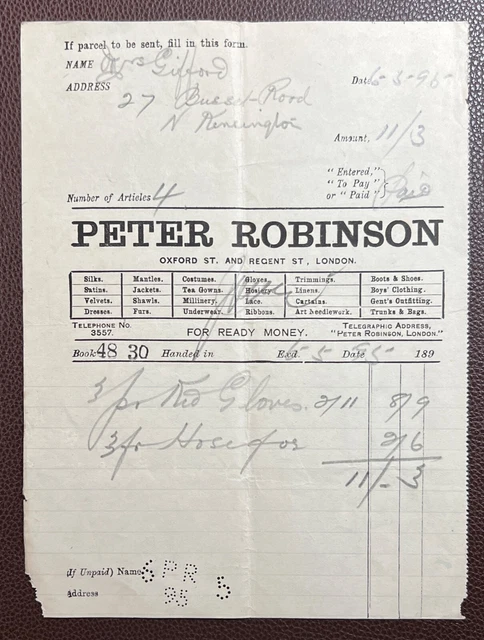 If parcel to be sent, fill in this form.
NAME Mrs Gifford
ADDRESS Date 6-3-95
27 Road
N Kensington
Amount, 11/3
"Entered,"
"To Pay"
or "Paid" Paid
Number of Articles 4
PETER ROBINSON
OXFORD ST. AND REGENT ST, LONDON.
Silks. Mantles. Costumes. Gloves. Trimmings. Boots & Shoes.
Satins. Jackets. Tea Gowns. Hosiery Linens. Boys' Clothing.
Velvets. Shawls. Millinery. Lace. Curtains. Gent's Outfitting.
Dresses. Furs. Underwear. Ribbons. Art Needlework. Trunks & Bags.
TELEPHONE No. 3557. FOR READY MONEY. TELEGRAPHIC ADDRESS, "PETER ROBINSON, LONDON."
Book 48 30 Handed in Exd. Date 189
3 pr Kid Gloves. 2/11 8/9
Hose 2/6
11/-3
(If Unpaid) Name
Address
SPR 5
95